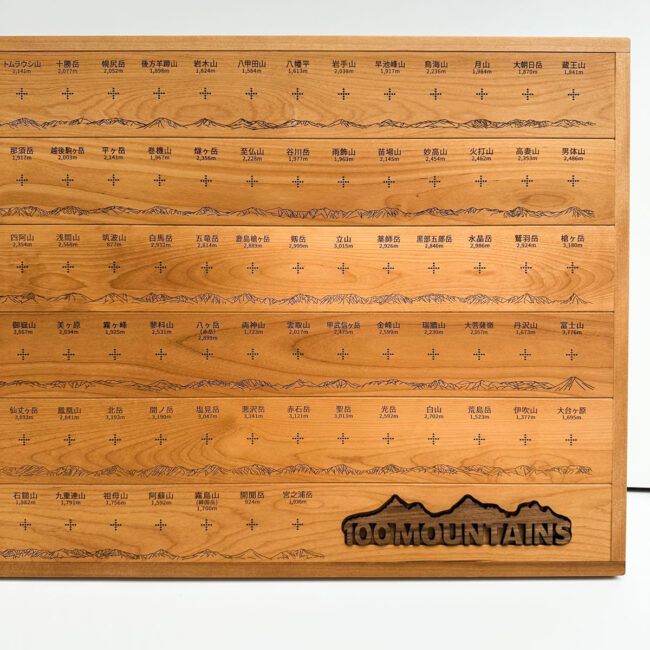 トムラウシ山 十勝岳 幌尻岳 後方羊蹄山 岩木山 八甲田山 八幡平 岩手山 早池峰山 鳥海山 月山 大朝日岳 蔵王山
2,141m 2,077m 2,052m 1,898m 1,624m 1,584m 1,613m 2,038m 1,917m 2,236m 1,984m 1,870m 1,841m
那須岳 越後駒ヶ岳 平ヶ岳 巻機山 燧ヶ岳 至仏山 谷川岳 雨飾山 苗場山 妙高山 火打山 高妻山 男体山
1,917m 2,003m 2,141m 1,967m 2,356m 2,228m 1,977m 1,963m 2,145m 2,454m 2,462m 2,353m 2,486m
四阿山 浅間山 筑波山 白馬岳 五竜岳 鹿島槍ヶ岳 剱岳 立山 薬師岳 黒部五郎岳 水晶岳 鷲羽岳 槍ヶ岳
2,354m 2,568m 877m 2,932m 2,814m 2,889m 2,999m 3,015m 2,926m 2,840m 2,986m 2,924m 3,180m
御嶽山 美ヶ原 霧ヶ峰 蓼科山 八ヶ岳 両神山 雲取山 甲武信ヶ岳 金峰山 瑞牆山 大菩薩嶺 丹沢山 富士山
(赤岳)
3,067m 2,034m 1,925m 2,531m 2,899m 1,723m 2,017m 2,475m 2,599m 2,230m 2,057m 1,673m 3,776m
仙丈ヶ岳 鳳凰山 北岳 間ノ岳 塩見岳 悪沢岳 赤石岳 聖岳 光岳 白山 荒島岳 伊吹山 大台ヶ原
3,033m 2,841m 3,193m 3,190m 3,047m 3,141m 3,121m 3,013m 2,592m 2,702m 1,523m 1,377m 1,695m
石鎚山 九重連山 祖母山 阿蘇山 霧島山 開聞岳 宮之浦岳
(韓国岳)
1,982m 1,791m 1,756m 1,592m 1,700m 924m 1,936m
100MOUNTAINS